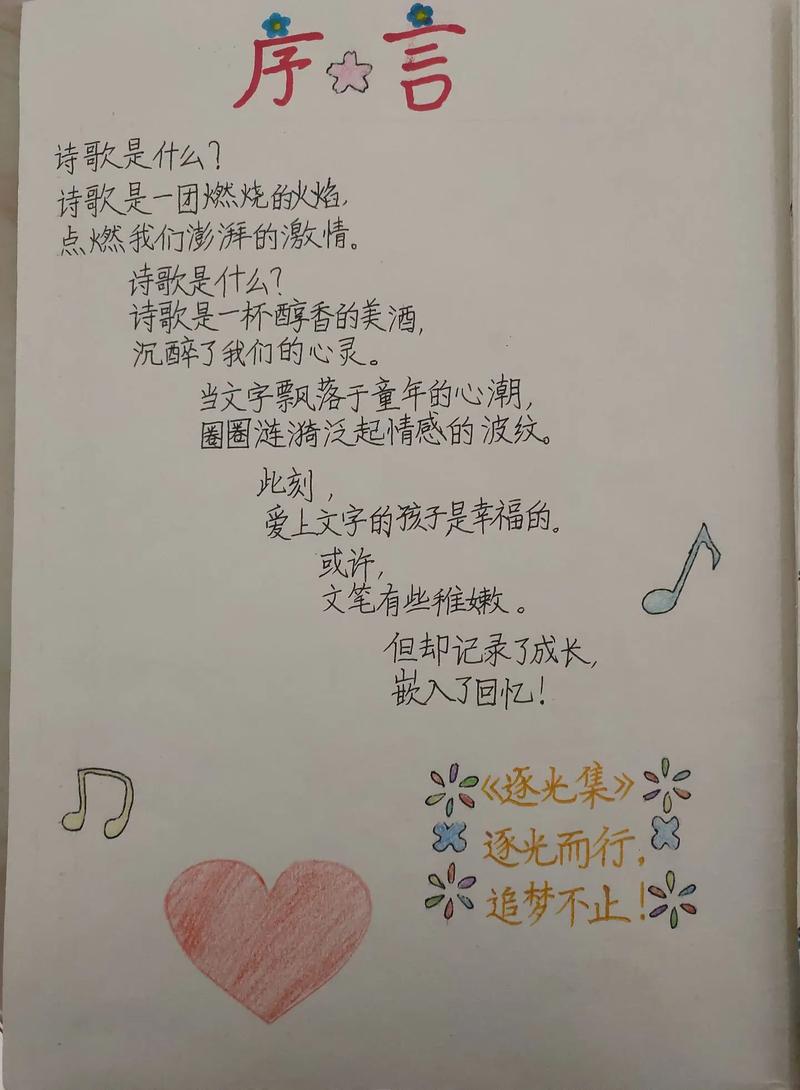 序言
诗歌是什么?
诗歌是一团燃烧的火焰,
点燃我们澎湃的激情。
诗歌是什么?
诗歌是一杯醇香的美酒,
沉醉了我们的心灵。
当文字飘落于童年的心潮,
圈圈涟漪泛起情感的波纹。
此刻,
爱上文字的孩子是幸福的。
或许,
文笔有些稚嫩。
但却记录了成长,
嵌入了回忆!
《逐光集》
逐光而行,
追梦不止!